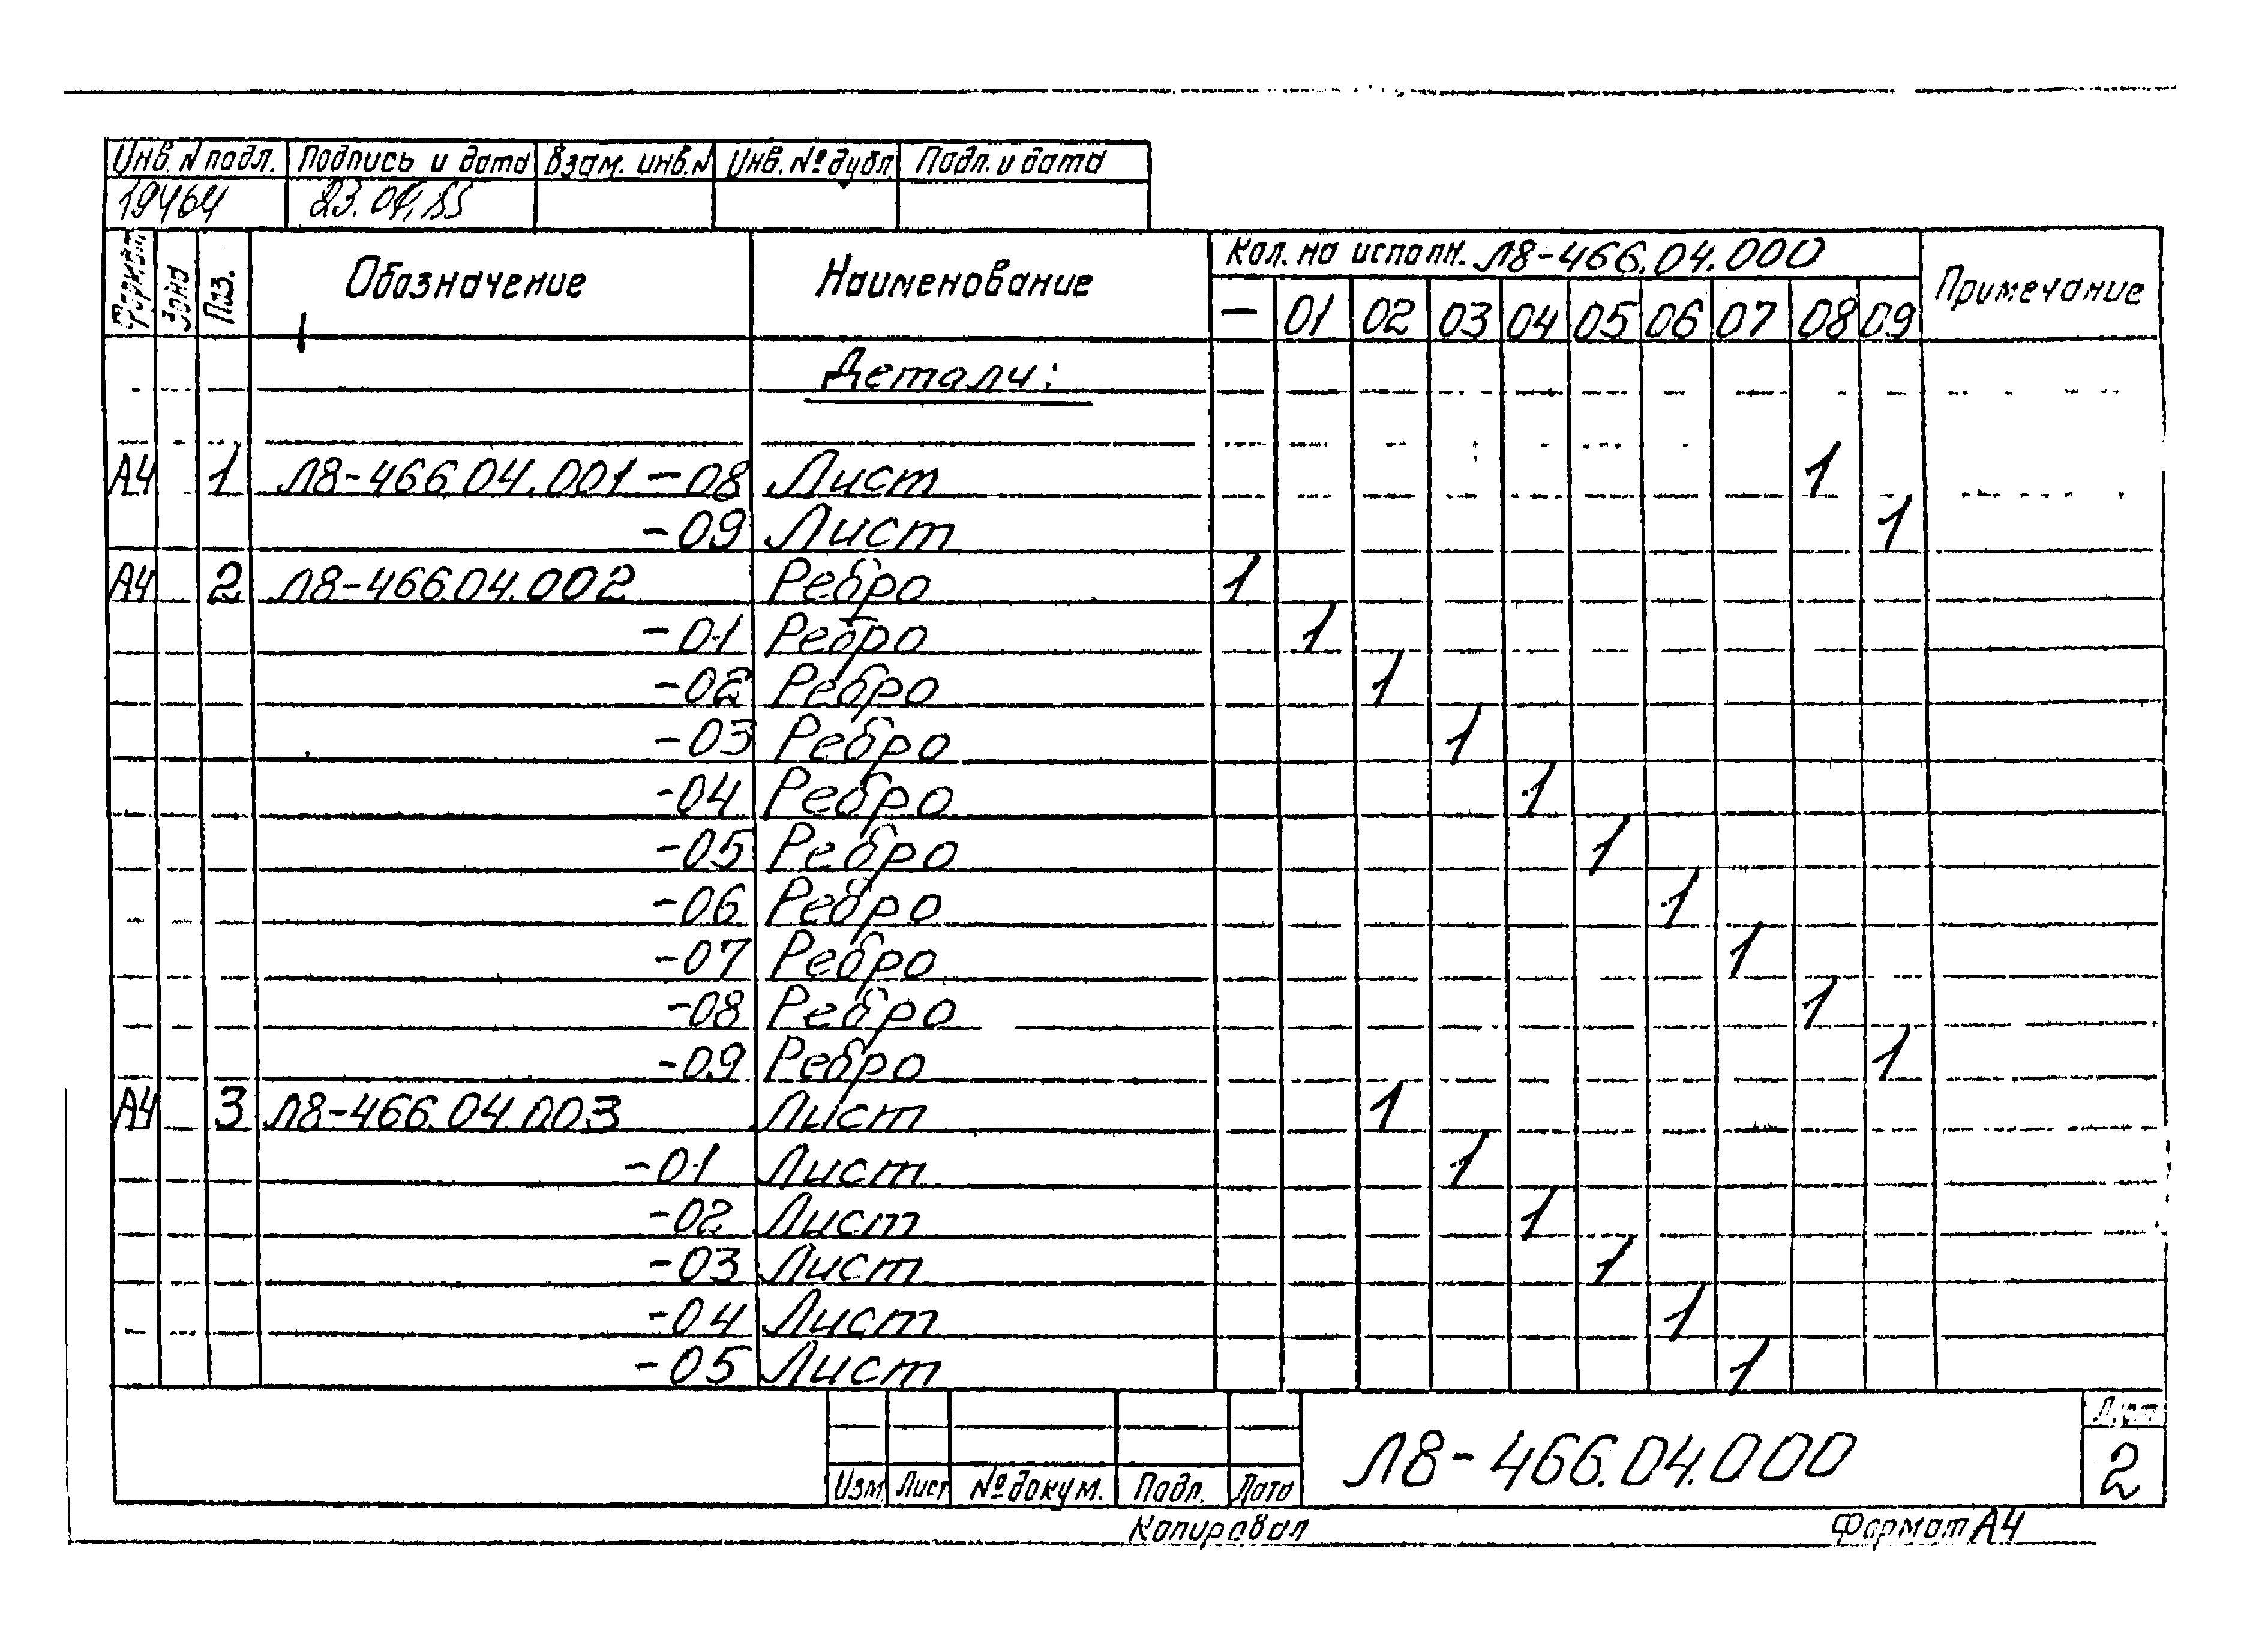 Инв. N подл. Подпись и дата Взам. инв. N Инв. № дубл. Подл. и дата
19464
Формат Зона Паз. Обозначение Наименование Кол. на исполн. Л8-466.04.000 Примечание
— 01 02 03 04 05 06 07 08 09
Детали:
А4 1 Л8-466.04.001-08 Лист 1
-09 Лист 1
А4 2 Л8-466.04.002 Ребро 1
-01 Ребро 1
-02 Ребро 1
-03 Ребро 1
-04 Ребро 1
-05 Ребро 1
-06 Ребро 1
-07 Ребро 1
-08 Ребро 1
-09 Ребро 1
А4 3 Л8-466.04.003 Лист 1
-01 Лист 1
-02 Лист 1
-03 Лист 1
-04 Лист 1
-05 Лист 1
Изм Лист № докум. Подп. Дата Л8-466.04.000 Лист
2
Копировал Формат А4